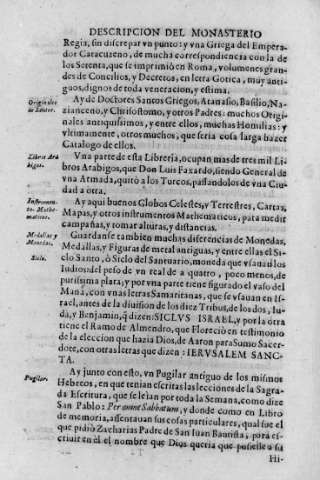 DESCRIPCION DEL MONASTERIO
Regia, sin discrepar vn punto: y vna Griega del Empera-
dor Catacuzeno, de mucha correspondencia con la de
los Setenta, que se imprimiò en Roma, volumenes gran-
des de Concilios, y Decretos, en letra Gotica, muy anti-
guos, dignos de toda veneracion, y estima.
Originales de Santos.
Ay de Doctores Santos Griegos, Atanasio, Basilio, Na-
zianceno, y Chrisostomo, y otros Padres: muchos Origi-
nales antiquissimos, y entre ellos, muchas Homilias: y
vltimamente, otros muchos, que seria cosa larga hazer
Catalogo de ellos.
Libros Ara-
bigos.
Vna parte de esta Libreria, ocupan mas de tres mil Li-
bros Arabigos, que Don Luis Faxardo, siendo General de
vna Armada, quitò a los Turcos, passandolos de vna Ciu-
dad a otra.
Instrumen-
tos Mathe-
maticos.
Ay aqui buenos Globos Celestes, y Terrestres, Cartas,
Mapas, y otros instrumentos Mathematicos, para medir
campañas, y tomar alturas, y distancias.
Medallas y
Monedas.
Guardanse tambien muchas diferencias de Monedas,
Medallas, y Figuras de metal antiguas, y entre ellas el Si-
Siclo.
clo Santo, ò Siclo del Santuario, moneda que vsauã los
Iudios del peso de vn real de a quatro, poco menos, de
purissima plata; y por vna parte tiene figurado el vaso del
Manà, con vnas letras Samaritanas, que se vsauan en Is-
rael, antes de la diuision de los diez Tribus, de los dos, Iu-
dà, y Benjamin, q̃ dizen: SICLVS ISRAEL, y por la otra
tiene el Ramo de Almendro, que Floreciò en testimonio
de la eleccion que hazia Dios, de Aaron para Sumo Sacer-
dote, con otras letras que dizen: IERVSALEM SANC-
TA.
Pugilar.
Ay junto con esto, vn Pugilar antiguo de los mismos
Hebreos, en que tenian escritas las lecciones de la Sagra-
da Escritura, que se leìan por toda la Semana, como dize
San Pablo: Per omne Sabbatum, y donde como en Libro
de memoria, assentauan sus cosas particulares, qual fue el
que pidiò Zacharias Padre de San Iuan Bautista, para es-
criuir en èl el nombre que Dios queria que pusiesse a su
Hi-